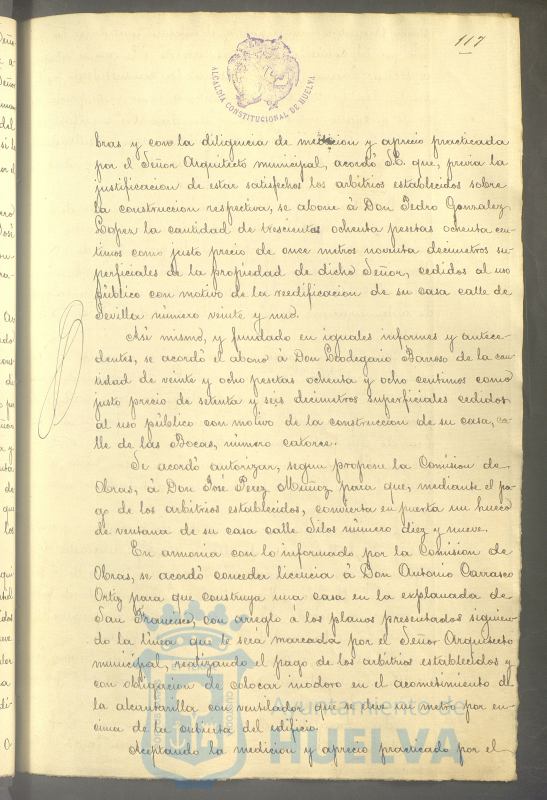 117
ALCALDÍA CONSTITUCIONAL DE HUELVA
bras y con la diligencia de medicion y aprecio practicada
por el Señor Arquitecto municipal, acordó S.E. que, previa la
justificacion de estar satisfechos los arbitrios establecidos sobre
la construccion respectiva, se abone á Don Pedro Gonzalez
Lopez la cantidad de trescientas ochenta pesetas ochenta cen-
timos como justo precio de once metros noventa decimetros su-
perficiales de la propiedad de dicho Señor, cedidos al uso
público con motivo de la reedificacion de su casa calle de
Sevilla número veinte y uno.
Asi mismo, y fundado en iguales informes y antece-
dentes, se acordó el abono á Don Leodegario Barroso de la can-
tidad de veinte y ocho pesetas ochenta y ocho centimos como
justo precio de setenta y seis decimetros superficiales cedidos
al uso público con motivo de la construccion de su casa, ca-
lle de las Bocas, número catorce.
Se acordó autorizar, segun propone la Comision de
Obras, á Don José Perez Muñoz para que, mediante el pa-
go de los arbitrios establecidos, convierta en puerta un hueco
de ventana de su casa calle Silos número diez y nueve.
En armonia con lo informado por la Comision de
Obras, se acordó conceder licencia á Don Antonio Carrasco
Ortiz para que construya una casa en la explanada de
San Francisco, con arreglo á los planos presentados siguien-
do la línea que le sera marcada por el Señor Arquitecto
municipal, realizando el pago de los arbitrios establecidos y
con obligacion de colocar inodoro en el acometimiento de
la alcantarilla con ventilador que se eleve un metro por en-
cima de la cubierta del edificio.
Aceptando la medicion y aprecio practicado por el
Ayuntamiento de
HUELVA